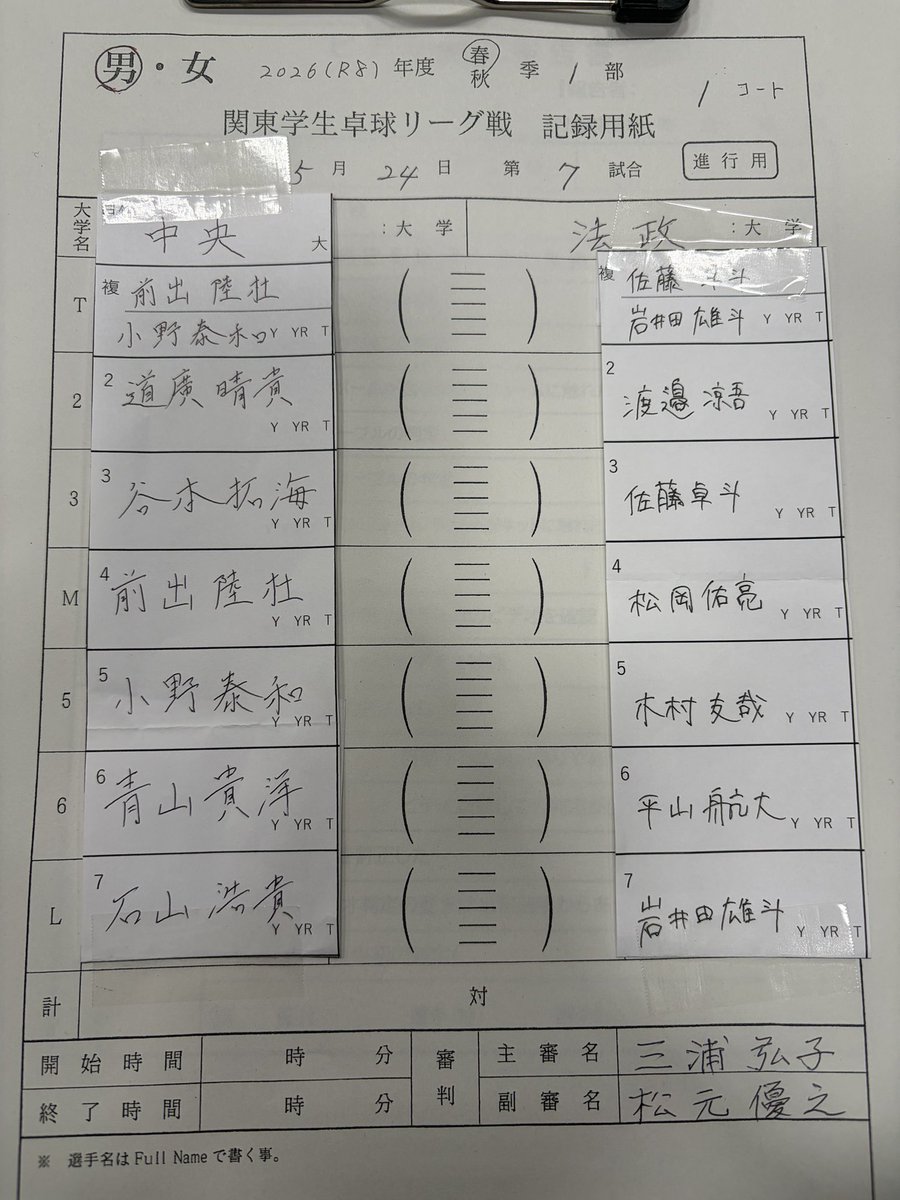 男・女 2026(R8)年度 春秋 季 1 部
1 コート
関東学生卓球リーグ戦 記録用紙
5 月 24 日 第 7 試合 進行用
大学名 中央 大 :大学 法政 :大学
T 複 前出 陸杜 ( ) 複 佐藤 斗
小野泰和 Y YR T 岩井田雄斗 Y YR T
2 2 道廣晴貴 Y YR T ( ) 2 渡邉涼吾 Y YR T
3 3 谷本拓海 Y YR T ( ) 3 佐藤卓斗 Y YR T
M 4 前出陸杜 Y YR T ( ) 4 松岡佑亮 Y YR T
5 5 小野泰和 Y YR T ( ) 5 木村友哉 Y YR T
6 6 青山貴洋 Y YR T ( ) 6 平山航大 Y YR T
L 7 石山浩貴 Y YR T ( ) 7 岩井田雄斗 Y YR T
計 対
開始時間 時 分 審判 主審名 三浦弘子
終了時間 時 分 副審名 松元優之
※ 選手名はFull Nameで書く事。